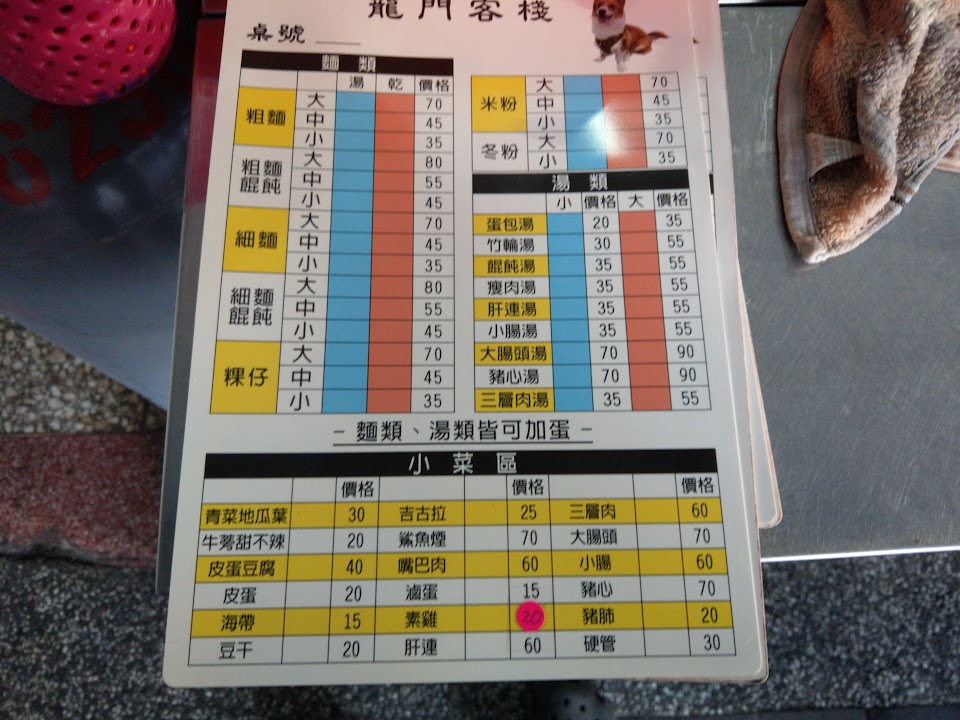 龍門客棧
桌號
麵類
湯 乾 價格
粗麵 大 70
中 45
小 35
粗麵餛飩 大 80
中 55
小 45
細麵 大 70
中 45
小 35
細麵餛飩 大 80
中 55
小 45
粿仔 大 70
中 45
小 35
米粉 大 70
中 45
小 35
冬粉 大 70
小 35
湯類
小 價格 大 價格
蛋包湯 20 35
竹輪湯 30 55
餛飩湯 35 55
瘦肉湯 35 55
肝連湯 35 55
小腸湯 35 55
大腸頭湯 70 90
豬心湯 70 90
三層肉湯 35 55
– 麵類、湯類皆可加蛋 –
小菜區
價格 價格 價格
青菜地瓜葉 30 吉古拉 25 三層肉 60
牛蒡甜不辣 20 鯊魚煙 70 大腸頭 70
皮蛋豆腐 40 嘴巴肉 60 小腸 60
皮蛋 20 滷蛋 15 豬心 70
海帶 15 素雞 20 豬肺 20
豆干 20 肝連 60 硬管 30